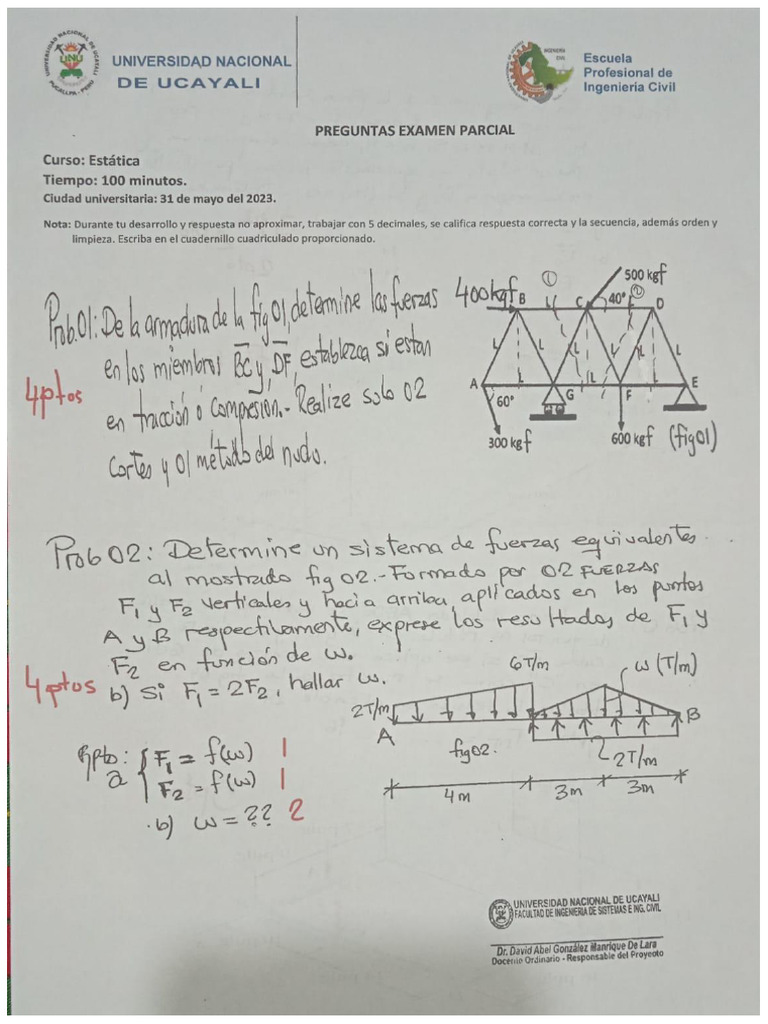 UNIVERSIDAD NACIONAL DE UCAYALI
UNU
PUCALLPA - PERU
UNIVERSIDAD NACIONAL
DE UCAYALI
INGENIERIA CIVIL
Escuela
Profesional de
Ingenieria Civil
PREGUNTAS EXAMEN PARCIAL
Curso: Estática
Tiempo: 100 minutos.
Ciudad universitaria: 31 de mayo del 2023.
Nota: Durante tu desarrollo y respuesta no aproximar, trabajar con 5 decimales, se califica respuesta correcta y la secuencia, además orden y
limpieza. Escriba en el cuadernillo cuadriculado proporcionado.
Prob.01: De la armadura de la fig 01, determine las fuerzas
en los miembros BC y, DF, establezca si estan
en tracción ó compresión.- Realize solo 02
Cortes y 01 método del nudo.
4ptos
400kgf
B
1
L
C
500 kgf
40°
2
D
L
L
L
L
L
L
A
L
G
L
F
L
E
60°
300 kgf
600 kgf
(fig01)
Prob 02: Determine un sistema de fuerzas equivalentes
al mostrado fig 02.- Formado por 02 FUERZAS
F1 y F2 verticales y hacia arriba, aplicados en los puntos
A y B respectivamente, exprese los resultados de F1 y
F2 en función de w.
4ptos
b) Si F1 = 2F2, hallar w.
6T/m
w (T/m)
2T/m
A
B
fig02.
2T/m
4m
3m
3m
Rpta:
a
F1 = f(w) 1
F2 = f(w) 1
b) w = ?? 2
UNIVERSIDAD NACIONAL DE UCAYALI
FACULTAD DE INGENIERIA DE SISTEMAS E ING. CIVIL
Dr. David Abel González Manrique De Lara
Docente Ordinario - Responsable del Proyecto